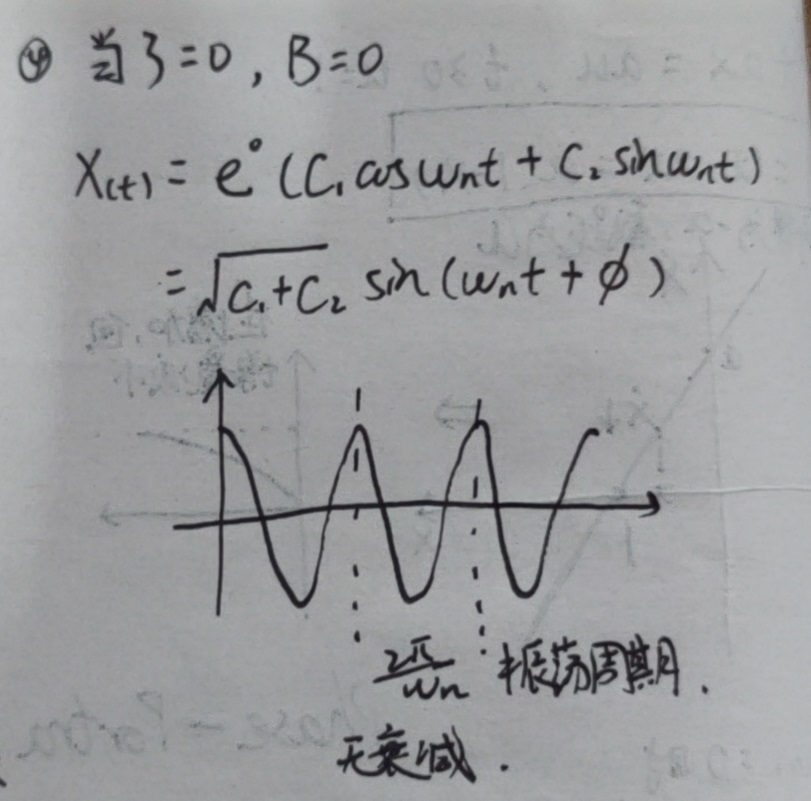 ④ 当ζ=0, B=0
X(t) = e⁰ (C₁ cos ωnt + C₂ sin ωnt)
= √(C₁+C₂) sin (ωnt + ϕ)
2π/ωn 振荡周期.
无衰减.